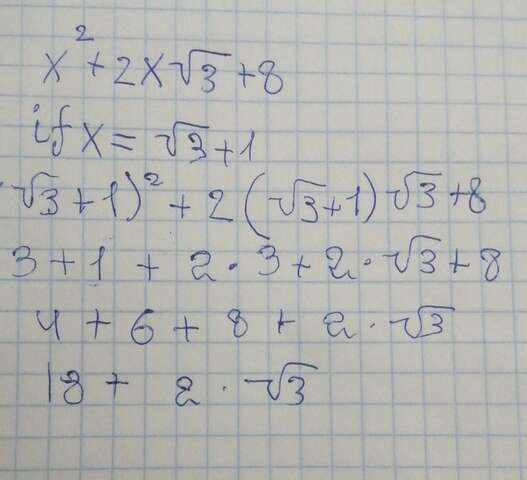 x² + 2x√3 + 8
if x = √3 + 1
√3 + 1)² + 2(√3 + 1)√3 + 8
3 + 1 + 2 · 3 + 2 · √3 + 8
4 + 6 + 8 + 2 · √3
18 + 2 · √3